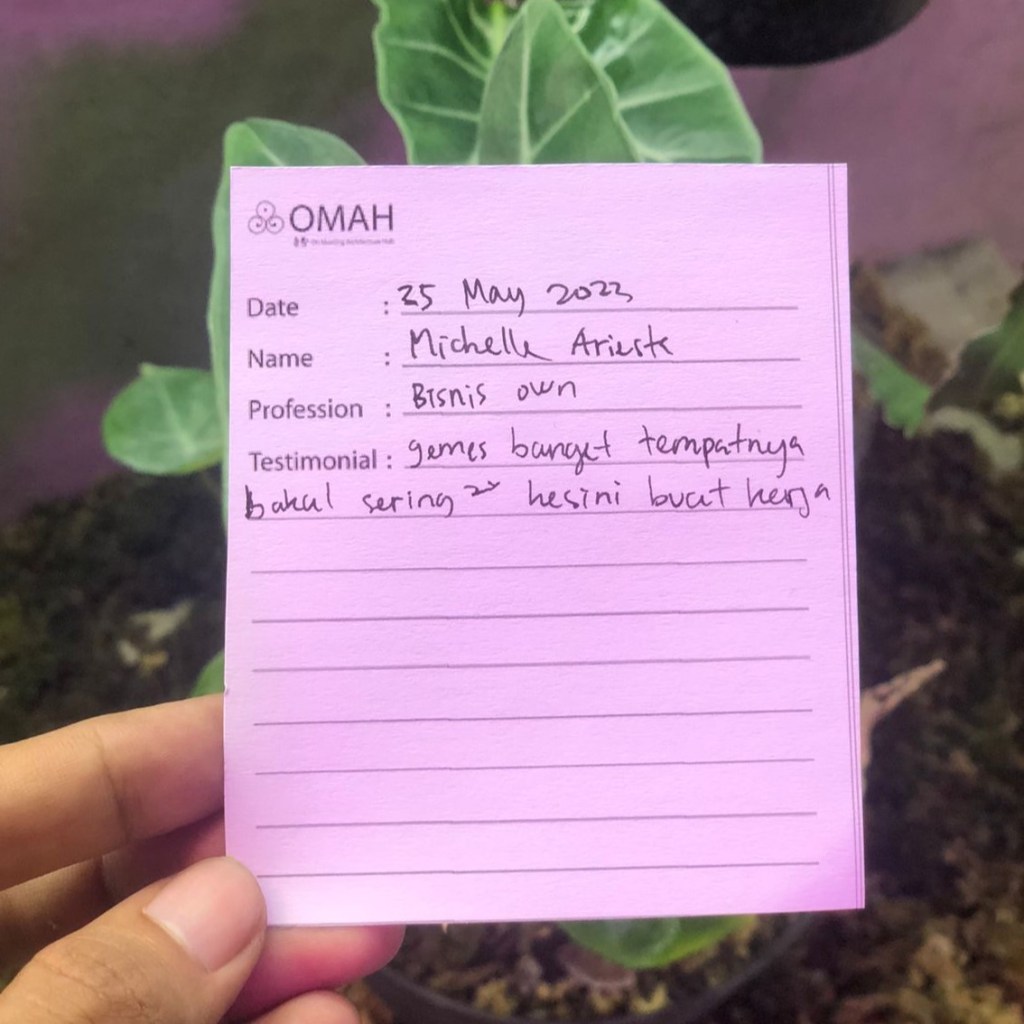 OMAH
Date : 25 May 2023
Name : Michelle Arieste
Profession : Bisnis own
Testimonial : gemes banget tempatnya
bakal sering² kesini buat kerja